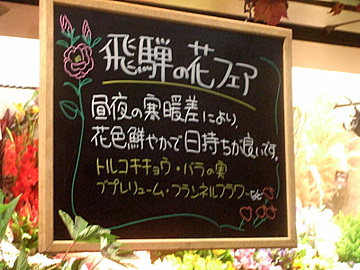 飛騨の花フェア
昼夜の寒暖差により、
花色鮮やかで日持ちが良いです。
トルコキキョウ・バラの実
ブプレリューム・フランネルフラワーなど